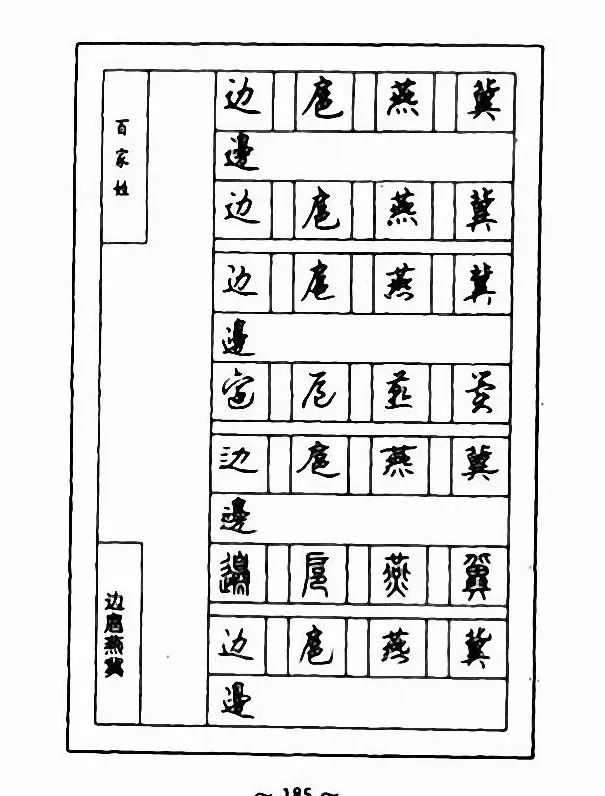 百家姓
边 扈 燕 冀
邊
边 扈 燕 冀
边 扈 燕 冀
邊
邊 扈 燕 冀
边 扈 燕 冀
邊
邊 扈 燕 冀
边 扈 燕 冀
邊
边扈燕冀
～ 185 ～